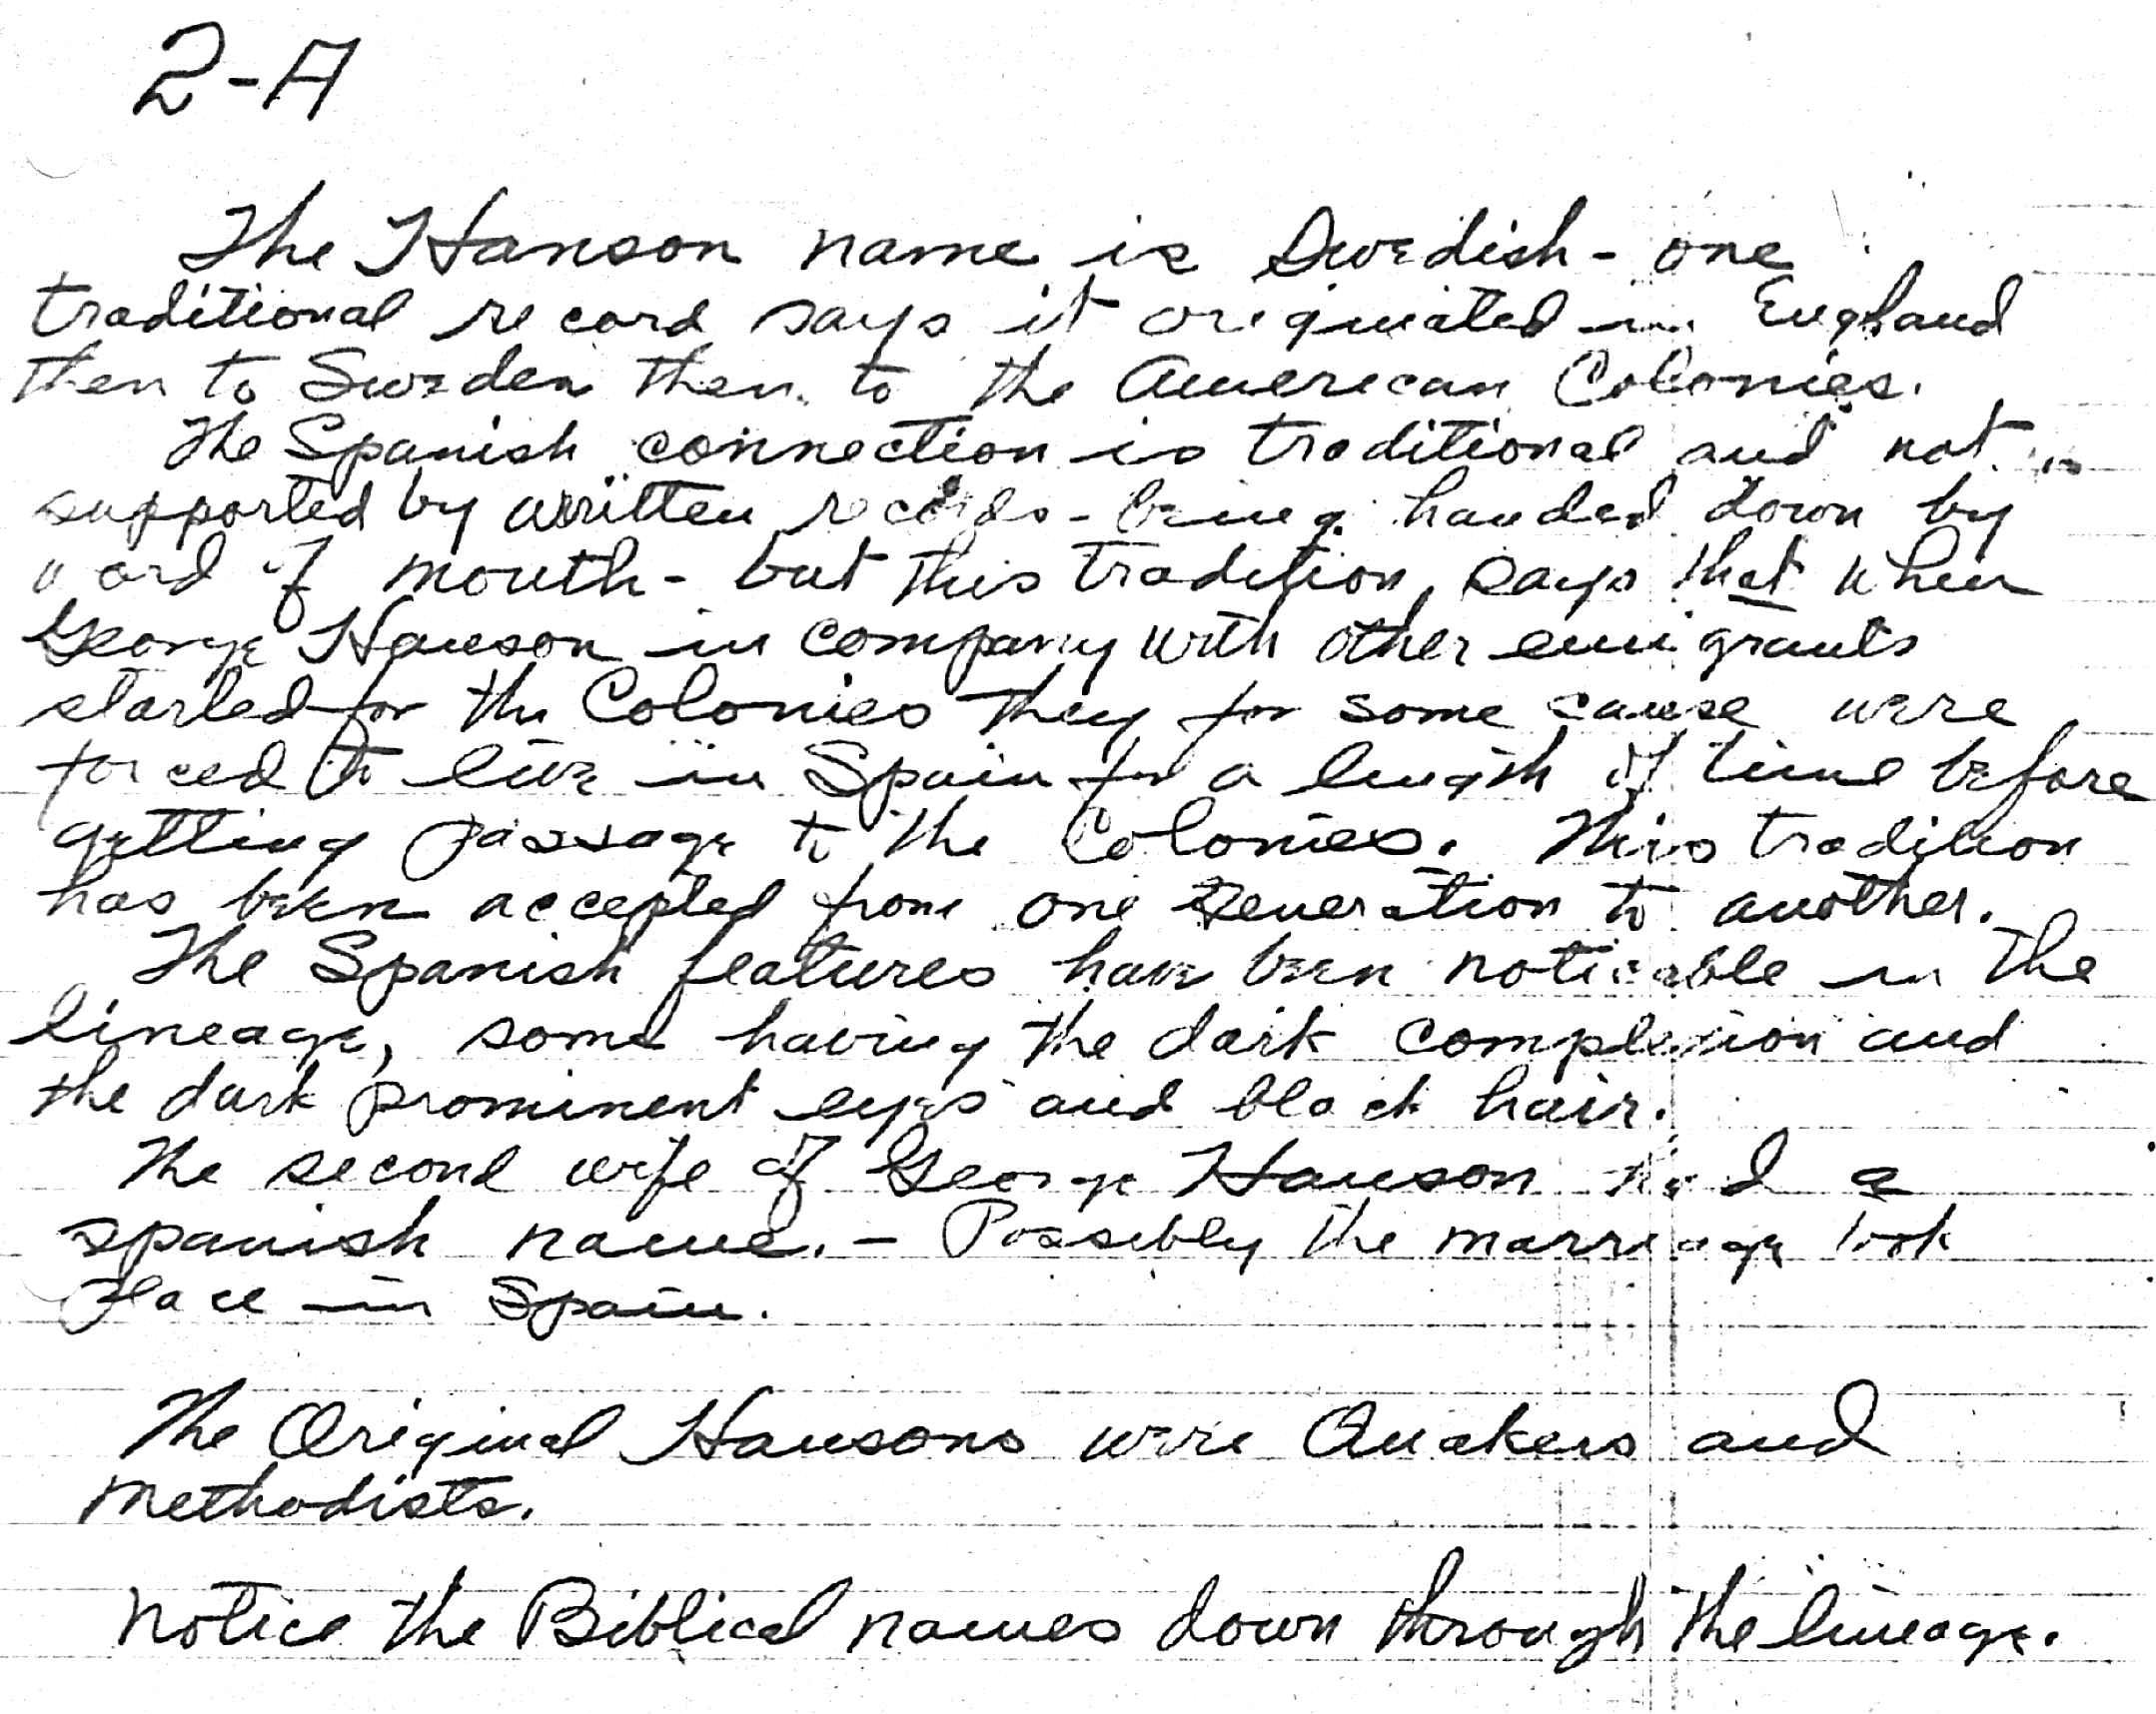 2-A
The Hanson name is Swedish - one
traditional record says it originated in England
then to Sweden then to the American Colonies.
The Spanish connection is traditional and not
supported by written records - being handed down by
word of mouth - but this tradition, says that when
George Hanson in company with other emigrants
started for the Colonies they for some cause were
forced to live in Spain for a length of time before
getting passage to the Colonies. This tradition
has been accepted from one generation to another.
The Spanish features have been noticable in the
lineage, some having the dark complexion and
the dark prominent eyes and black hair.
The second wife of George Hanson had a
spanish name. - Possibly the marriage took
place in Spain.
The Original Hansons were Quakers and
Methodists.
Notice the Biblical names down through the lineage.